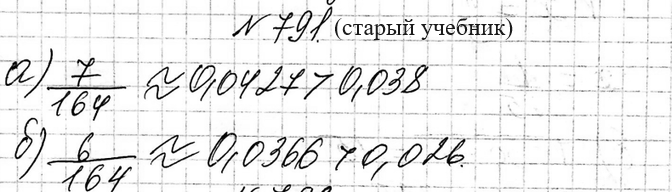 № 791. (старый учебник)
а) 7/164 ≈ 0,0427 > 0,038
б) 6/164 ≈ 0,0366 > 0,026.